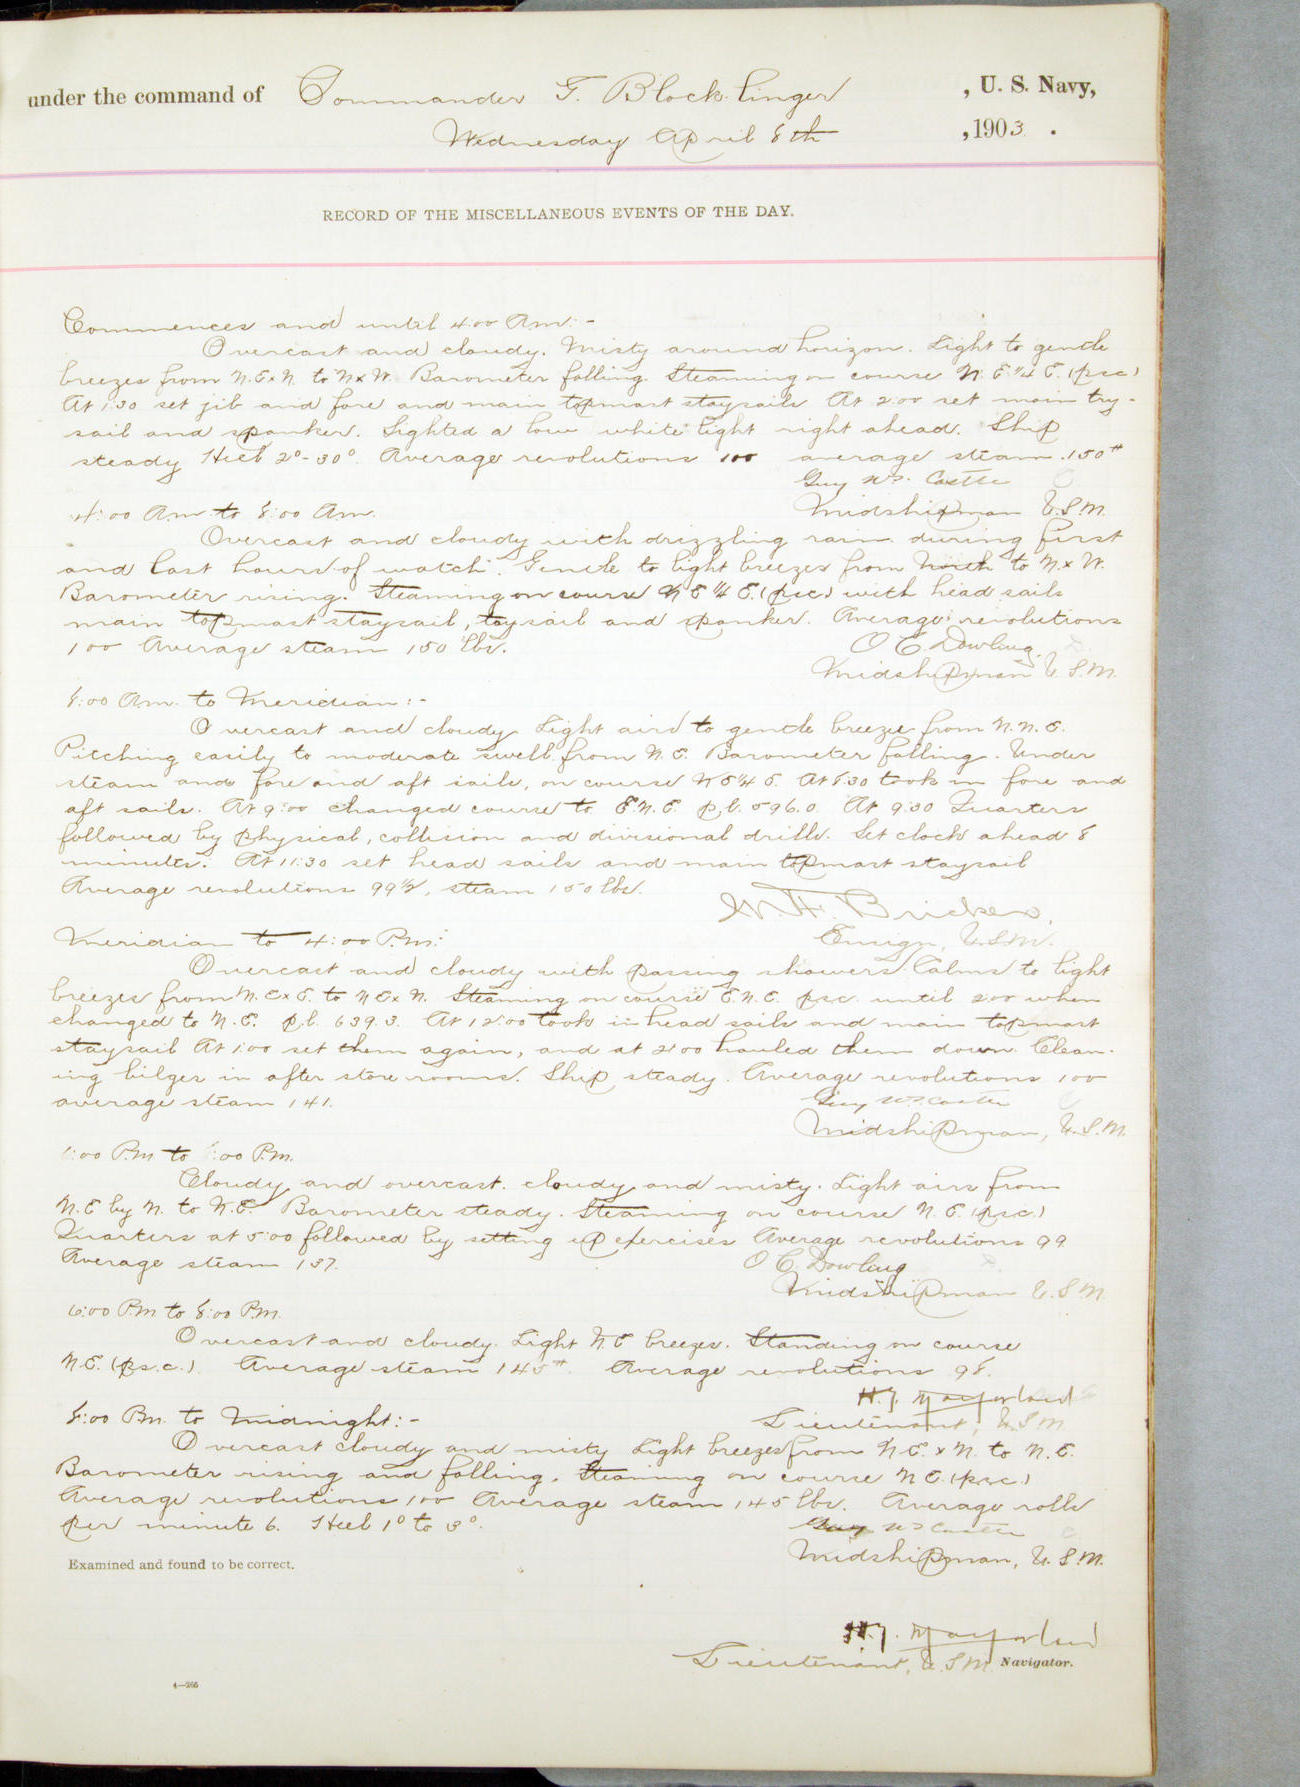 under the command of Commander G. Blocklinger , U. S. Navy,
Wednesday April 8th , 1903 .
RECORD OF THE MISCELLANEOUS EVENTS OF THE DAY.
Commences and until 4:00 Am:-
Overcast and cloudy. Misty around horizon. Light to gentle
breezes from N.E.xN. to NxW. Barometer falling. Steaming on course N.E.¼E.(psc)
At 1:30 set jib and fore and main topmast staysails At 2:00 set main try-
sail and spanker. Sighted a low white light right ahead. Ship
steady Heel 2°-30°. Average revolutions 100 average steam 150#
Guy W.S. Castle
Midshipman U.S.N.
4:00 Am to 8:00 Am.
Overcast and cloudy with drizzling rain during first
and last hours of watch. Gentle to light breezes from North to NxW.
Barometer rising. Steaming on course NE¼E.(psc) with head sails
main topmast staysail, taysail and spanker. Average revolutions
100 Average steam 150 lbs.
O C. Dowling.
Midshipman U.S.N.
8:00 Am. to Meridian:-
Overcast and cloudy Light airs to gentle breeze from N.N.E.
Pitching easily to moderate swell from N.E. Barometer falling. Under
steam and fore and aft sails, on course NE¼E. At 8:30 took in fore and
aft sails. At 9:00 changed course to E.N.E p.l. 596.0 At 9:30 Quarters
followed by physical, collision and divisional drills. Set clock ahead 8
minutes. At 11:30 set head sails and main topmast staysail
Average revolutions 99½, steam 150 lbs.
Ensign, U.S.N.
Meridian to 4:00 P.m:
Overcast and cloudy with passing showers. Calms to light
breezes from N.ExE. to NExN. Steaming on course E.N.E. psc until 2:00 when
changed to N.E. p.l. 639.3. At 12:00 took in head sails and main topmast
staysail At 1:00 set them again, and at 2:00 hauled them down. Clean-
ing bilges in after store rooms. Ship steady. Average revolutions 100
average steam 141.
Guy W.S. Castle
Midshipman, U.S.N.
:00 P.M to :00 P.M.
Cloudy and overcast. cloudy and misty. Light airs from
N.E by N. to N.E. Barometer steady. Steaming on course N.E.(psc.)
Quarters at 5:00 followed by setting up exercises Average revolutions 99
Average steam 137.
O C. Dowling
Midshipman U.S.N.
6:00 P.M to 8:00 P.M.
Overcast and cloudy. Light N.E breezes. Standing on course
N.E.(p.s.c.). Average steam 145#. Average revolutions 98.
Lieutenant, U.S.N.
8:00 Pm. to Midnight:-
Overcast cloudy and misty Light breezes from N.E.xN. to N.E.
Barometer rising and falling. Steaming on course NE.(psc)
Average revolutions 100 Average steam 145 lbs. Average rolls
per minute 6. Heel 1° to 3°.
Guy W.S. Castle
Midshipman, U.S.N.
Examined and found to be correct.
Lieutenant, U.S.N. Navigator.
4—266